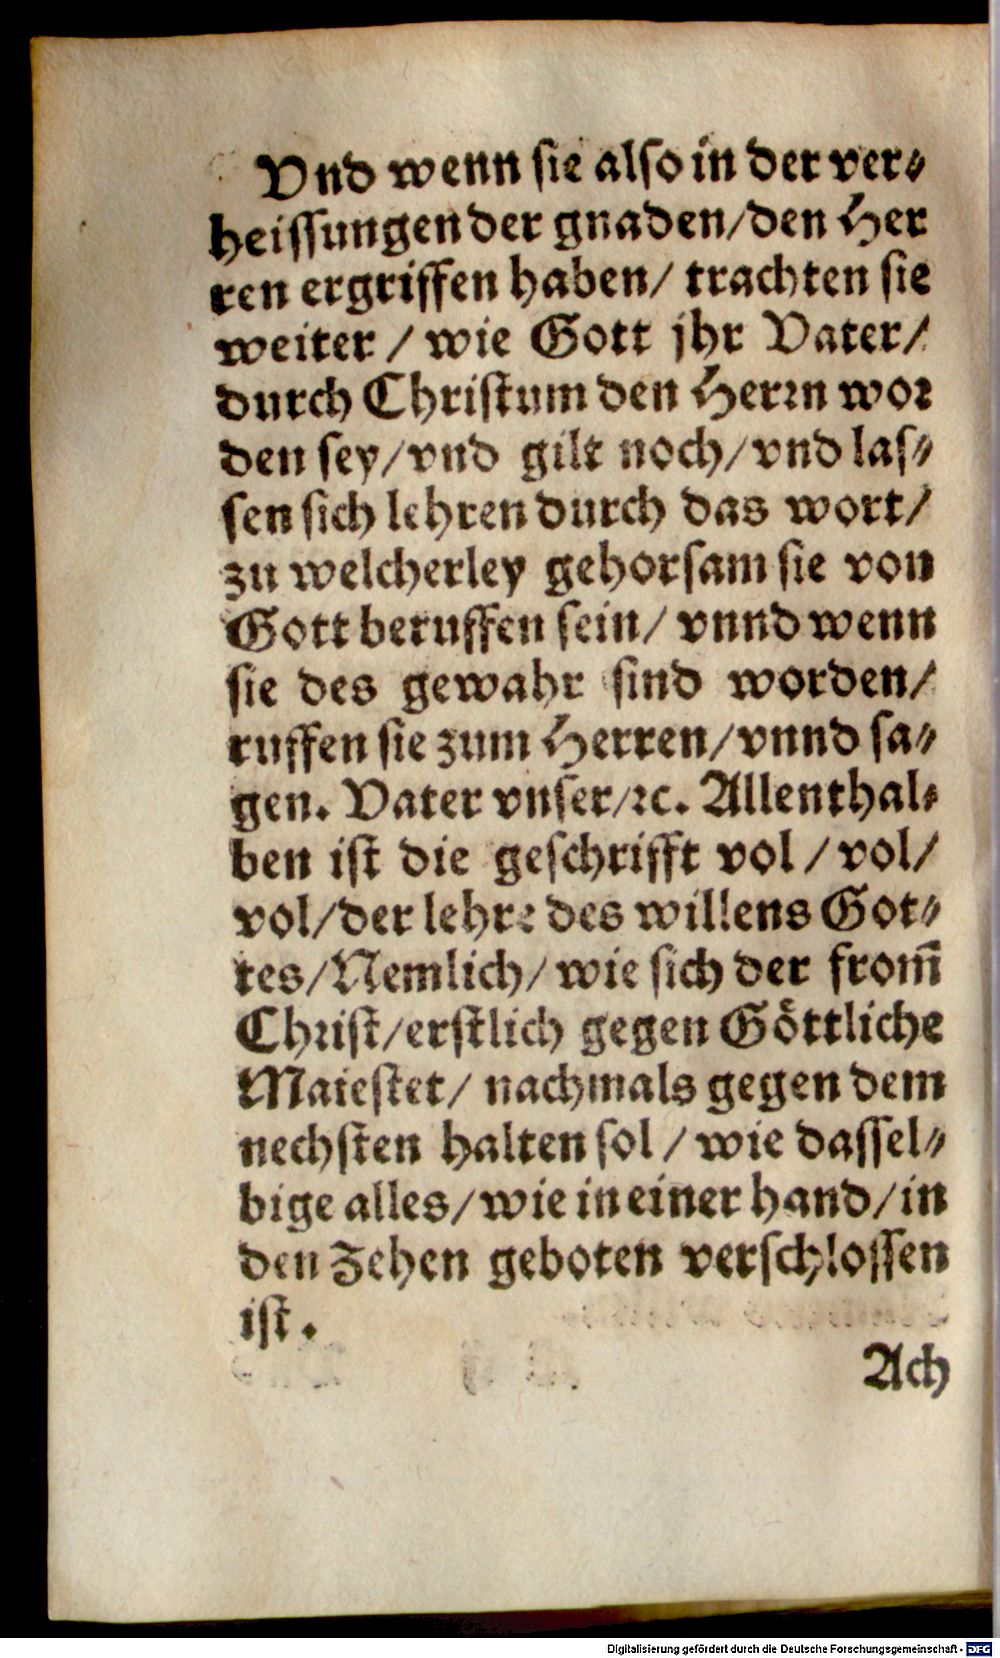 Vnd wenn sie also in der ver⸗
heissungen der gnaden/den Her
ren ergriffen haben/ trachten sie
weiter / wie Gott jhr Vater/
durch Christum den Herrn wor
den sey/vnd gilt noch/vnd las⸗
sen sich lehren durch das wort/
zu welcherley gehorsam sie von
Gott beruffen sein/ vnnd wenn
sie des gewahr sind worden/
ruffen sie zum Herren/vnnd sa⸗
gen. Vater vnser/ꝛc. Allenthal⸗
ben ist die geschrifft vol / vol/
vol/der lehre des willens Got⸗
tes/Nemlich/ wie sich der from̄
Christ/erstlich gegen Göttliche
Maiestet/ nachmals gegen dem
nechsten halten sol / wie dassel⸗
bige alles/wie in einer hand/in
den Zehen geboten verschlossen
ist.
Ach
Digitalisierung gefördert durch die Deutsche Forschungsgemeinschaft - DFG